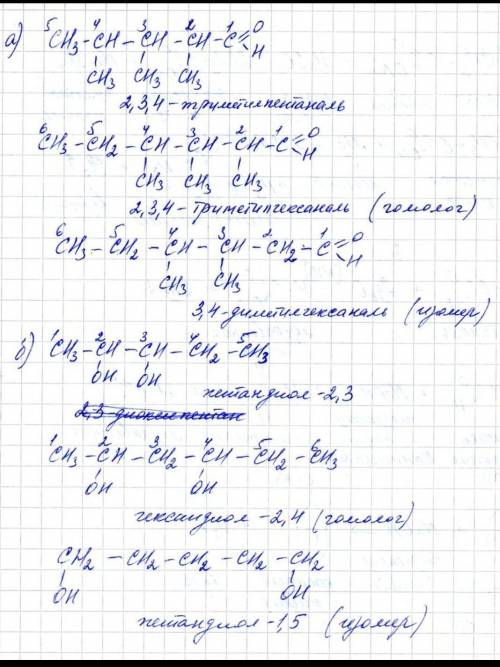 а) ⁵CH₃ – ⁴CH – ³CH – ²CH – ¹C O
H
CH₃ CH₃ CH₃
2,3,4 – триметилпентаналь
⁶CH₃ – ⁵CH₂ – ⁴CH – ³CH – ²CH – ¹C O
H
CH₃ CH₃ CH₃
2,3,4 – триметилгексаналь (гомолог)
⁶CH₃ – ⁵CH₂ – ⁴CH – ³CH – ²CH₂ – ¹C O
H
CH₃ CH₃
3,4-диметилгексаналь (изомер)
б) ¹CH₃ – ²CH – ³CH – ⁴CH₂ – ⁵CH₃
OH OH
пентандиол – 2,3
2,3-диоксипентан
¹CH₃ – ²CH – ³CH₂ – ⁴CH – ⁵CH₂ – ⁶CH₃
OH OH
гександиол – 2,4 (гомолог)
CH₂ – CH₂ – CH₂ – CH₂ – CH₂
OH OH
пентандиол – 1,5 (изомер)